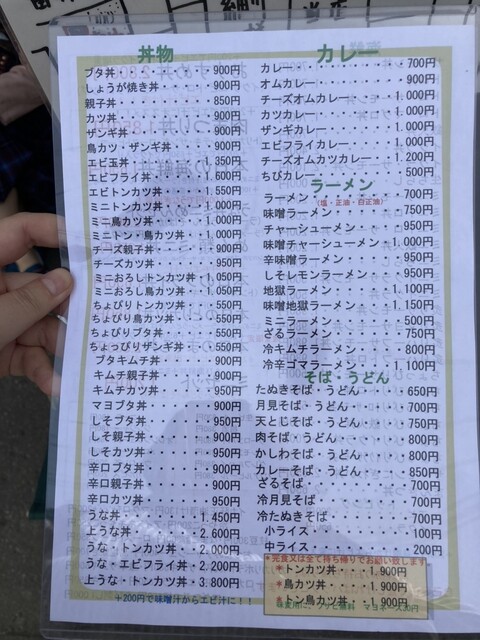 丼物
ブタ丼・・・・・・・・900円
しょうが焼き丼・・・・900円
親子丼・・・・・・・・850円
カツ丼・・・・・・・・900円
ザンギ丼・・・・・・・900円
鳥カツ・ザンギ丼・・・900円
エビ玉丼・・・・・・1.350円
エビフライ丼・・・・1.600円
エビトンカツ丼・・・1.550円
ミニトンカツ丼・・・1.000円
ミニ鳥カツ丼・・・・1.000円
ミニトン・鳥カツ丼・1.000円
チーズ親子丼・・・・・900円
チーズカツ丼・・・・・950円
ミニおろしトンカツ丼・1.050円
ミニおろし鳥カツ丼・1.050円
ちょびりトンカツ丼・・550円
ちょびり鳥カツ丼・・・550円
ちょびりブタ丼・・・・550円
ちょっびりザンギ丼・・550円
ブタキムチ丼・・・・900円
キムチ親子丼・・・・900円
キムチカツ丼・・・・950円
マヨブタ丼・・・・・900円
しそブタ丼・・・・・950円
しそ親子丼・・・・・900円
しそカツ丼・・・・・950円
辛口ブタ丼・・・・・900円
辛口親子丼・・・・・900円
辛口カツ丼・・・・・950円
うな丼・・・・・・1.450円
上うな丼・・・・・2.600円
うな・トンカツ丼・・2.000円
うな・エビフライ丼・2.200円
上うな・トンカツ丼・3.800円
+200円で味噌汁からエビ汁に！！
カレー
カレー・・・・・・・・700円
オムカレー・・・・・・900円
チーズオムカレー・・1.000円
カツカレー・・・・・1.000円
ザンギカレー・・・・1.000円
エビフライカレー・・1.000円
チーズオムカツカレー・1.200円
ちびカレー・・・・・・500円
ラーメン
ラーメン・・・・・・・700円
(塩・正油・白正油)
味噌ラーメン・・・・・750円
チャーシューメン・・・950円
味噌チャーシューメン・1.000円
辛味噌ラーメン・・・・950円
しそレモンラーメン・・950円
地獄ラーメン・・・・1.100円
味噌地獄ラーメン・・1.150円
ミニラーメン・・・・・500円
ざるラーメン・・・・・750円
冷キムチラーメン・・・800円
冷辛ゴマラーメン・・1.100円
そば・うどん
たぬきそば・うどん・・・650円
月見そば・うどん・・・・700円
天とじそば・うどん・・・750円
肉そば・うどん・・・・・800円
かしわそば・うどん・・・800円
カレーそば・うどん・・・850円
ざるそば・・・・・・・・700円
冷月見そば・・・・・・・700円
冷たぬきそば・・・・・・700円
小ライス・・・・・・・・100円
中ライス・・・・・・・・200円
*完食又は全て持ち帰りでお願い致します
*トンカツ丼・・・1.900円
*鳥カツ丼・・・・1.900円
*トン鳥カツ丼・・1.900円